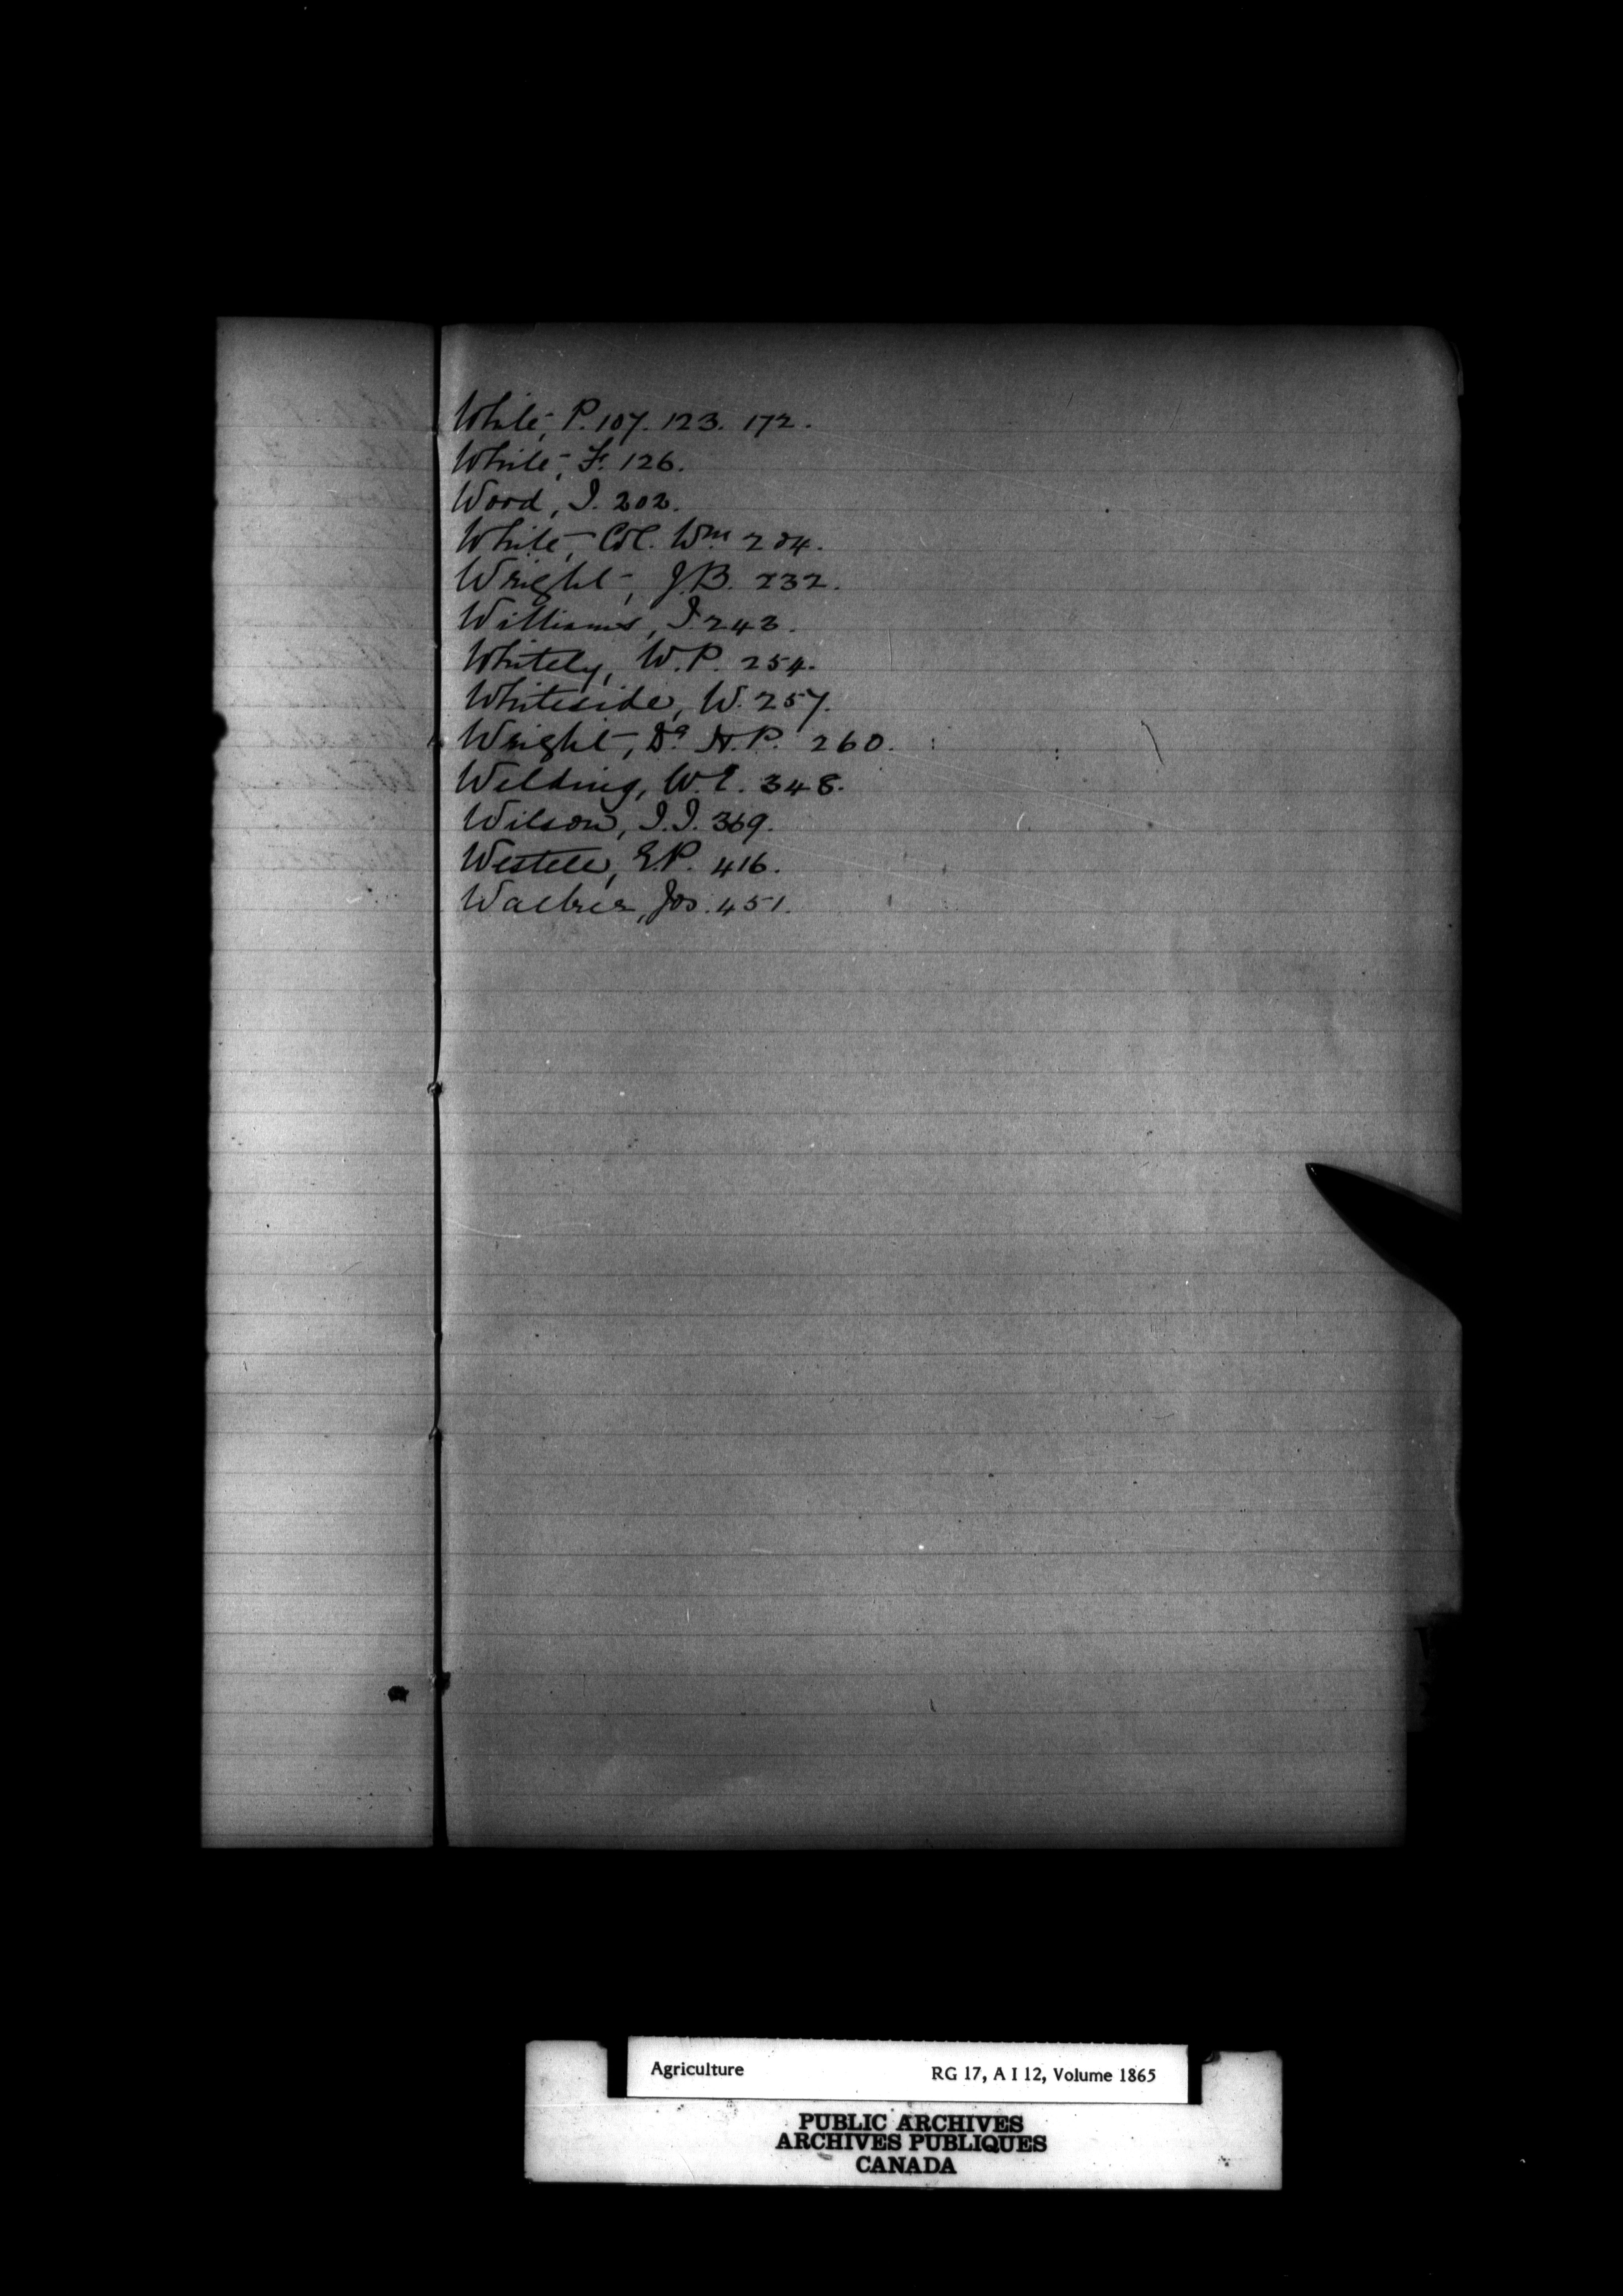 White, P. 107. 123. 172.
White, F. 126.
Wood, I. 202.
White, Col. Wm. 204.
Wright, J.B. 232.
Williams, I. 243.
Whitely, W.P. 254.
Whiteside, W. 257.
Wright, Dr. H.P. 260.
Welding, W.E. 348.
Wilson, I.I. 369.
E.P. 416.
Jos. 451.
Agriculture RG 17, A I 12, Volume 1865
PUBLIC ARCHIVES
ARCHIVES PUBLIQUES
CANADA